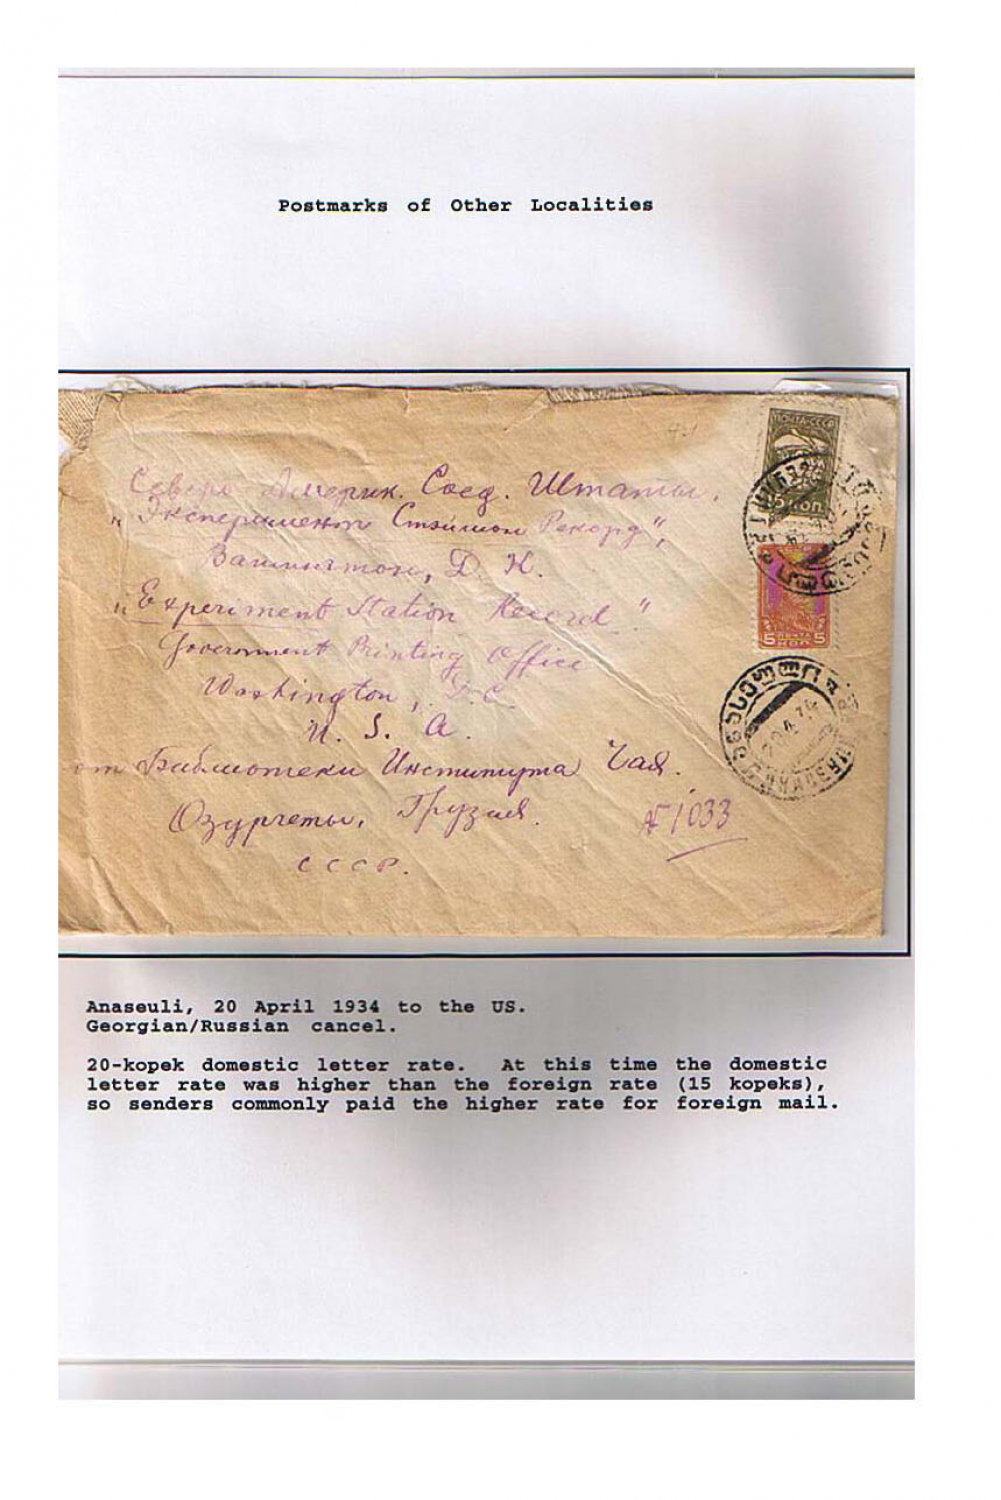 Postmarks of Other Localities
ПОЧТА СССР
15 КОП.
Северо Америк. Соед. Штаты.
„Эксперимент Стэйшон Рекорд",
Вашингтон, Д. К.
„Experiment Station Record"
Government Printing Office
Washington, D.C.
U. S. A.
от Библиотеки Института Чая.
Озургеты, Грузия.
СССР.
№ 1033
5 ПОЧТА 5
КОП.
20.4.34
Anaseuli, 20 April 1934 to the US.
Georgian/Russian cancel.
20-kopek domestic letter rate. At this time the domestic
letter rate was higher than the foreign rate (15 kopeks),
so senders commonly paid the higher rate for foreign mail.